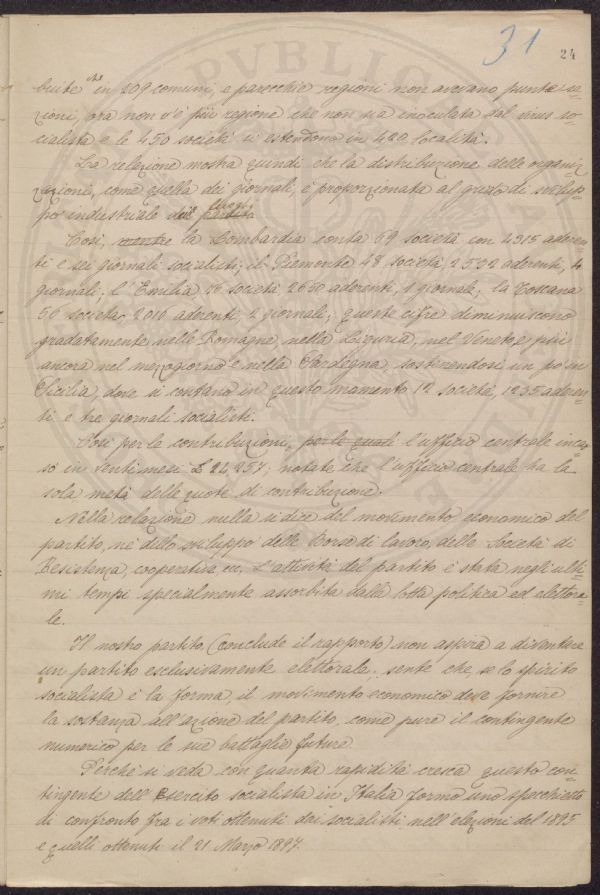 31
24
buite in 209 comuni, e parecchie regioni non avevano punte se=
zioni, ora non v'è più regione che non sia inoculata dal virus so=
cialista e le 450 società si estendono in 420 località.
La relazione mostra quindi che la distribuzione delle organiz=
zazioni, come quella dei giornali, è proporzionata al grado di svilup=
po industriale dei luoghi
Così, mentre la Lombardia conta 69 società con 4315 aderen
ti e sei giornali socialisti; il Piemonte 48 società, 2532 aderenti, 4
giornali; l'Emilia società 2650 aderenti, 1 giornale; la Toscana
50 società 2010 aderenti 2 giornali; queste cifre diminuiscono
gradatamente nelle Romagne, nella Liguria, nel Veneto, e più
ancora nel mezzogiorno e nella Sardegna, sostenendosi un po' in
Sicilia, dove si contano in questo momento 12 società, 1235 aderen=
ti e tre giornali socialisti.
Così per le contribuzioni, per le quali l'ufficio centrale incas=
sò in venti mesi £ 24,257; notate che l'ufficio centrale ha la
sola metà delle quote di contribuzione.
Nella relazione nulla si dice del movimento economico del
partito, nè dello sviluppo delle Borse di lavoro, delle Società di
Resistenza, cooperative, ecc. L'attività del partito è stata negli ulti=
mi tempi specialmente assorbita dalla lotta politica ed elettora=
le.
Il nostro partito, (conclude il rapporto) non aspira a diventare
un partito esclusivamente elettorale; sente che, se lo spirito
socialista è la forma, il movimento economico deve fornire
la sostanza all'azione del partito, come pure il contingente
numerico per le sue battaglie future.
Perchè si veda con quanta rapidità cresca questo con=
tingente dell'Esercito socialista in Italia, formo uno specchietto
di confronto fra i voti ottenuti dai socialisti nell'elezioni del 1895
e quelli ottenuti il 21 Marzo 1897.